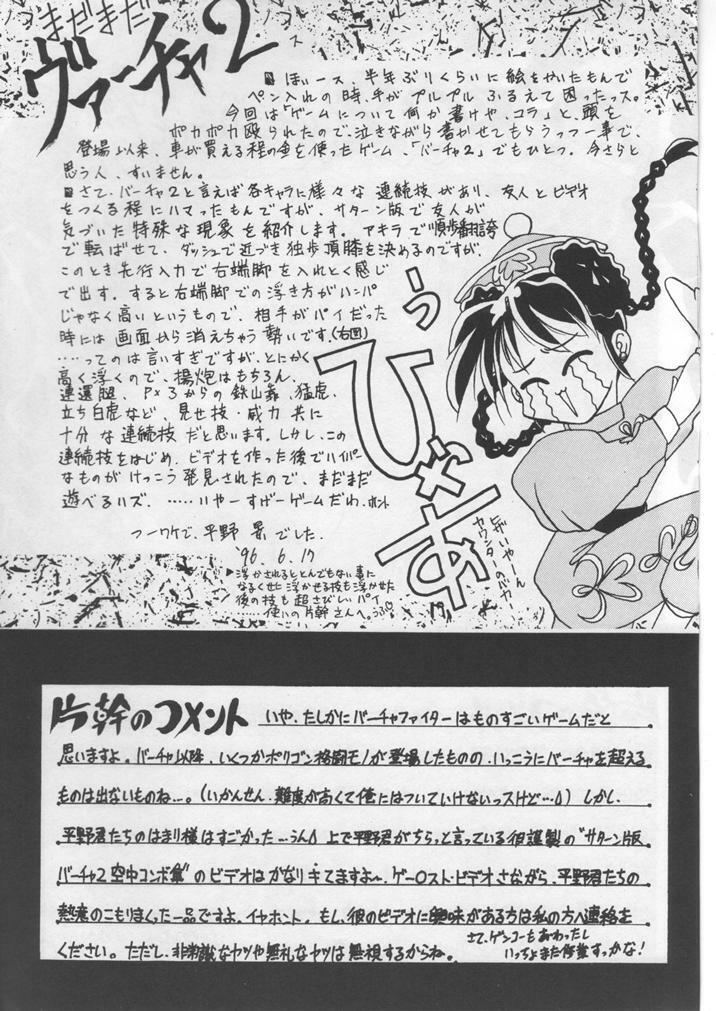 まだまだ
ヴァーチャ2
■ほいース、半年ぶりくらいに絵をかいたもんで
ペン入れの時、手がプルプルふるえて困ったっス。
今回は「ゲームについて何か書けや、コラ」と、頭を
ポカポカ殴られたので、泣きながら書かせてもらうっつー事で、
登場以来、車が買える程の金を使ったゲーム、「バーチャ2」でもひとつ。今さらと
思う人、すいません。
■さて、バーチャ2と言えば各キャラに様々な連続技があり、友人とビデオ
をつくる程にハマったもんですが、サターン版で友人が
気づいた特殊な現象を紹介します。アキラで順歩翻誇
で転ばせて、ダッシュで近づき独歩頂膝を決めるのですが、
このとき先行入力で右端脚を入れとく感じ
で出す。すると右端脚での浮き方がハンパ
じゃなく高いというもので、相手がパイだった
時には画面から消えちゃう勢いです。(右図)
……ってのは言いすぎですが、とにかく
高く浮くので、揚炮はもちろん、
連還腿、PX3からの鉄山靠、猛虎、
立ち白虎など、見せ技・威力共に
十分な連続技だと思います。しかし、この
連続技をはじめ、ビデオを作った後でハイパー
なものがけっこう発見されたので、まだまだ
遊べるハズ。……いやーすげーゲームだわ、ホント
つーワケで、平野 景でした。
'96.6.17
▶浮かされるととんでもない事に
なるくせに浮かせる技も浮かせた
後の技も超さびしいパイ
……使いの片幹さんへ。うふ♡
うひゃあ
ヒザいやーん
カウンターのバカ
片幹のコメント
いや、たしかにバーチャファイターはものすごいゲームだと
思いますよ。バーチャ以降、いくつかポリゴン格闘モノが登場したものの、いっこうにバーチャを超える
ものは出ないものね…。(いかんせん、難度が高くて俺にはついていけないっスけど…)しかし、
平野君たちのはまり様はすごかった…うん 上で平野君がちらっと言っている彼謹製の"サターン版
バーチャ2空中コンボ集"のビデオはかなりキてますよ〜、ゲーOスト・ビデオさながら、平野君たちの
熱意のこもりまくった一品ですよ、イヤホント。もし、彼のビデオに興味がある方は私の方へ連絡を
ください。ただし、非常識なヤツや無礼なヤツは無視するからね。
さて、ゲンコーもおわったし
いっちょまた修業すっかな!